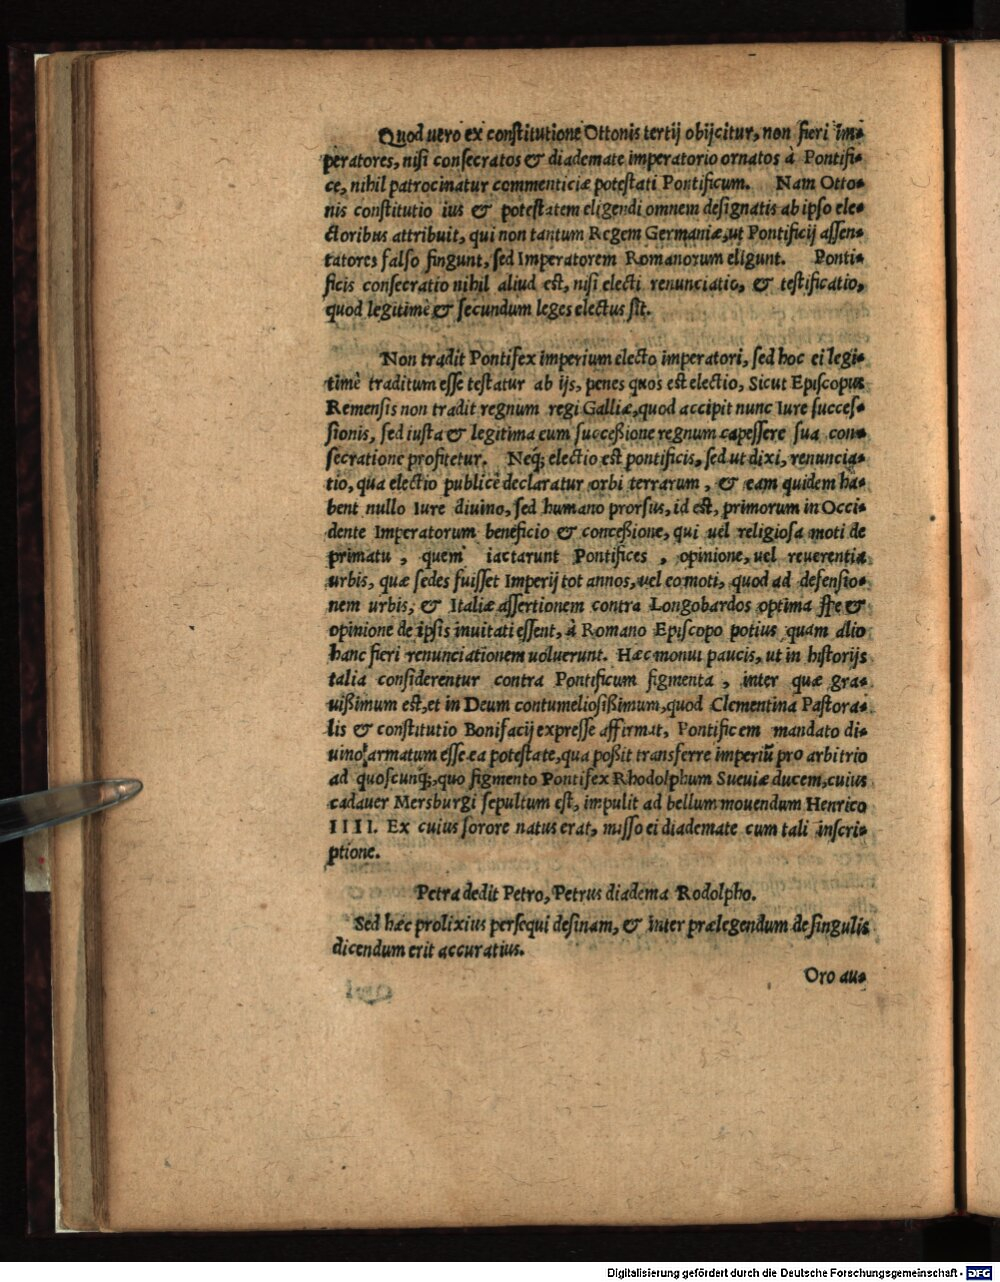 Quod uero ex constitutione Ottonis tertij obijcitur, non fieri im-
peratores, nisi consecratos & diademate imperatorio ornatos à Pontifi-
ce, nihil patrocinatur commenticiæ potestati Pontificum. Nam Otto-
nis constitutio ius & potestatem eligendi omnem designatis ab ipso ele-
ctoribus attribuit, qui non tantum Regem Germaniæ, ut Pontificij assen-
tatores falso fingunt, sed Imperatorem Romanorum eligunt. Ponti-
ficis consecratio nihil aliud est, nisi electi renunciatio, & testificatio,
quod legitimè & secundum leges electus sit.
Non tradit Pontifex imperium electo imperatori, sed hoc ei legi-
timè traditum esse testatur ab ijs, penes quos est electio, Sicut Episcopus
Remensis non tradit regnum regi Galliæ, quod accipit nunc Iure succes-
sionis, sed iusta & legitima eum successione regnum capessere sua con-
secratione profitetur. Neq; electio est pontificis, sed ut dixi, renuncia-
tio, qua electio publicè declaratur orbi terrarum, & eam quidem ha-
bent nullo Iure diuino, sed humano prorsus, id est, primorum in Occi-
dente Imperatorum beneficio & concessione, qui uel religiosa moti de
primatu, quem iactarunt Pontifices, opinione, uel reuerentia
urbis, quæ sedes fuisset Imperij tot annos, uel eo moti, quod ad defensio-
nem urbis, & Italiæ assertionem contra Longobardos optima spe &
opinione de ipsis inuitati essent, à Romano Episcopo potius quam alio
hanc fieri renunciationem uoluerunt. Hæc monui paucis, ut in historijs
talia considerentur contra Pontificum figmenta, inter quæ gra-
uissimum est, et in Deum contumeliosissimum, quod Clementina Pastora-
lis & constitutio Bonifacij expresse affirmat, Pontificem mandato di-
uino armatum esse ea potestate, qua possit transferre imperiũ pro arbitrio
ad quoscunq;, quo figmento Pontifex Rhodolphum Sueuiæ ducem, cuius
cadauer Mersburgi sepultum est, impulit ad bellum mouendum Henrico
IIII. Ex cuius sorore natus erat, misso ei diademate cum tali inscri-
ptione.
Petra dedit Petro, Petrus diadema Rodolpho.
Sed hæc prolixius persequi desinam, & inter prælegendum de singulis
dicendum erit accuratius.
Oro au-
Digitalisierung gefördert durch die Deutsche Forschungsgemeinschaft - DFG